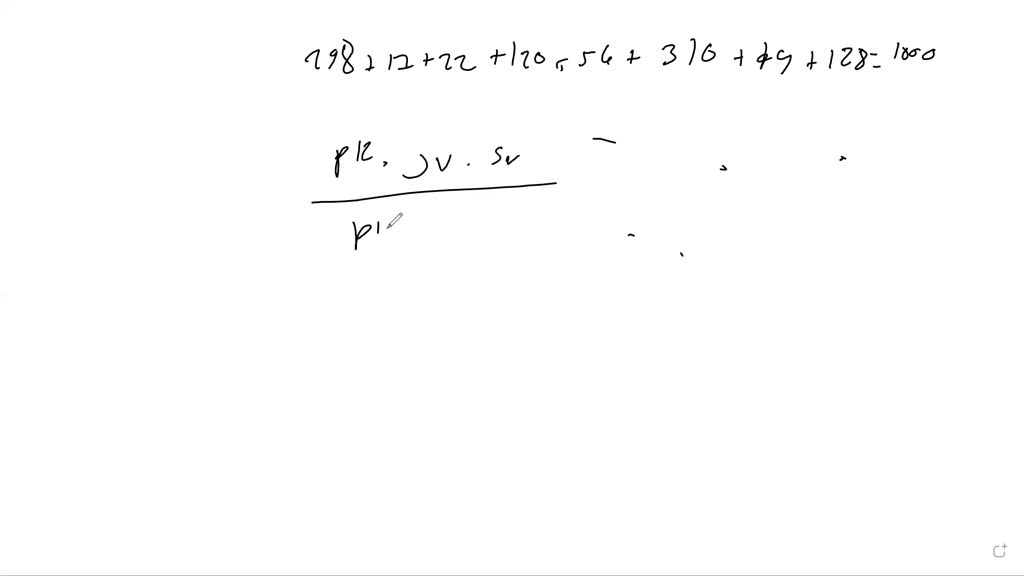 298 + 12 + 22 + 120 + 56 + 310 + 49 + 128 = 1000
pr . jv . sv
pr